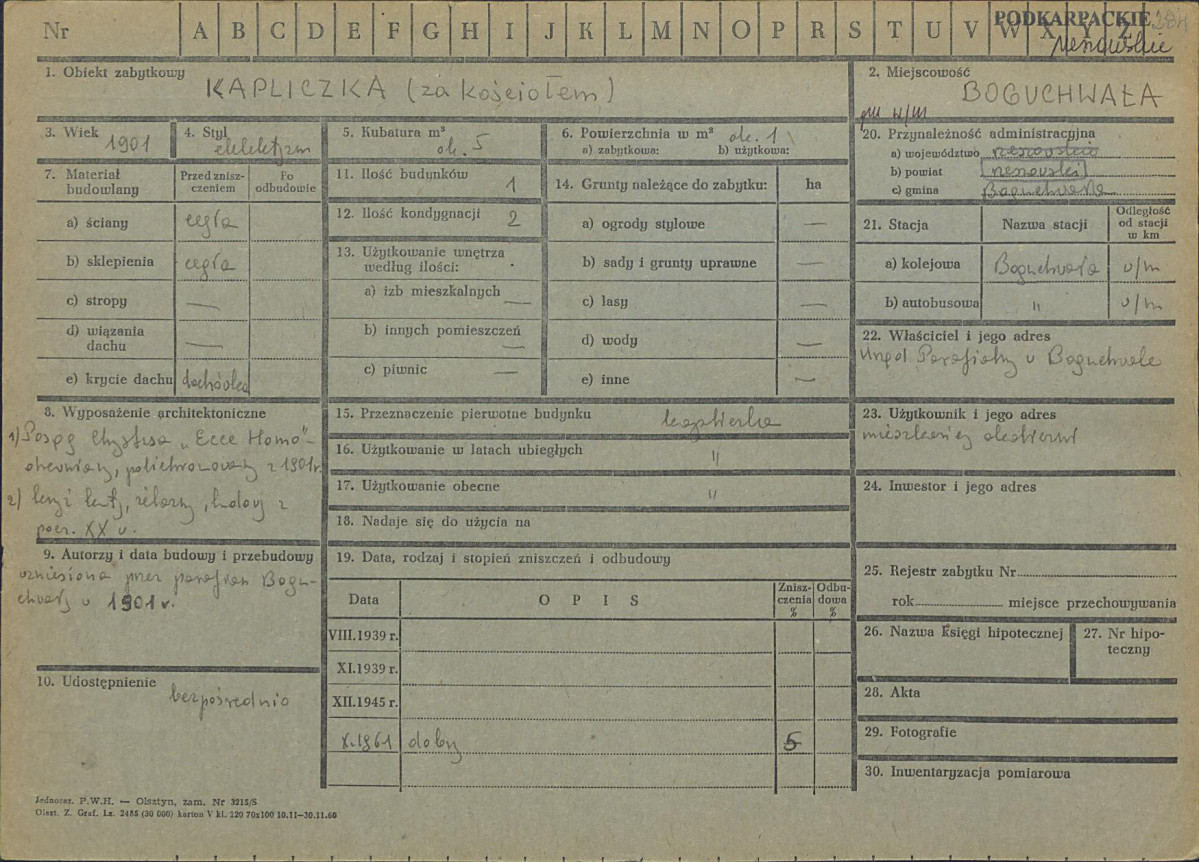 Nr A B C D E F G H I J K L M N O P R S T U V W X Y Z
PODKARPACKIE 384
rzeszowskie
1. Obiekt zabytkowy
KAPLICZKA (za kościołem)
2. Miejscowość
BOGUCHWAŁA
gm w/m
3. Wiek
1901
4. Styl
eklektyzm
5. Kubatura m³
ok. 5
6. Powierzchnia w m² ok. 1
a) zabytkowa: b) użytkowa:
7. Materiał budowlany
Przed zniszczeniem
Po odbudowie
a) ściany cegła
b) sklepienia cegła
c) stropy —
d) wiązania dachu —
e) krycie dachu dachówka
8. Wyposażenie architektoniczne
1) Posąg Chrystusa „Ecce Homo"-
drewniany, polichromowany z 1901r.
2) krzyż kuty, żelazny, ludowy z
pocz. XX w.
9. Autorzy i data budowy i przebudowy
wzniesiona przez parafian Bogu-
chwały w 1901 r.
10. Udostępnienie
bezpośrednio
11. Ilość budynków 1
12. Ilość kondygnacji 2
13. Użytkowanie wnętrza
według ilości:
a) izb mieszkalnych —
b) innych pomieszczeń —
c) piwnic —
14. Grunty należące do zabytku: ha
a) ogrody stylowe —
b) sady i grunty uprawne —
c) lasy —
d) wody —
e) inne —
15. Przeznaczenie pierwotne budynku kapliczka
16. Użytkowanie w latach ubiegłych "
17. Użytkowanie obecne "
18. Nadaje się do użycia na
19. Data, rodzaj i stopień zniszczeń i odbudowy
Data O P I S Zniszczenia % Odbudowa %
VIII.1939 r.
XI.1939 r.
XII.1945 r.
X.1961 dobry 5
20. Przynależność administracyjna
a) województwo rzeszowskie
b) powiat rzeszowski
c) gmina Boguchwała
21. Stacja Nazwa stacji Odległość od stacji w km
a) kolejowa Boguchwała w/m
b) autobusowa " w/m
22. Właściciel i jego adres
Urząd Parafialny w Boguchwale
23. Użytkownik i jego adres
mieszkańcy
24. Inwestor i jego adres
25. Rejestr zabytku Nr
rok miejsce przechowywania
26. Nazwa księgi hipotecznej
27. Nr hipoteczny
28. Akta
29. Fotografie
30. Inwentaryzacja pomiarowa
Jednoraz. P.W.H. — Olsztyn, zam. Nr 3215/S
Olszt. Z. Graf. Lz. 2485 (30 000) karton V kl. 220 70x100 10.11—30.11.60